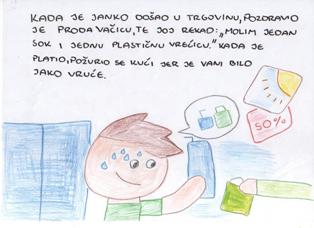 KADA JE JANKO DOŠAO U TRGOVINU, POZDRAVIO
JE PRODAVAČICU, TE JOJ REKAO: „MOLIM JEDAN
SOK I JEDNU PLASTIČNU VREĆICU." KADA JE
PLATIO, POŽURIO SE KUĆI JER JE VANI BILO
JAKO VRUĆE.
50%